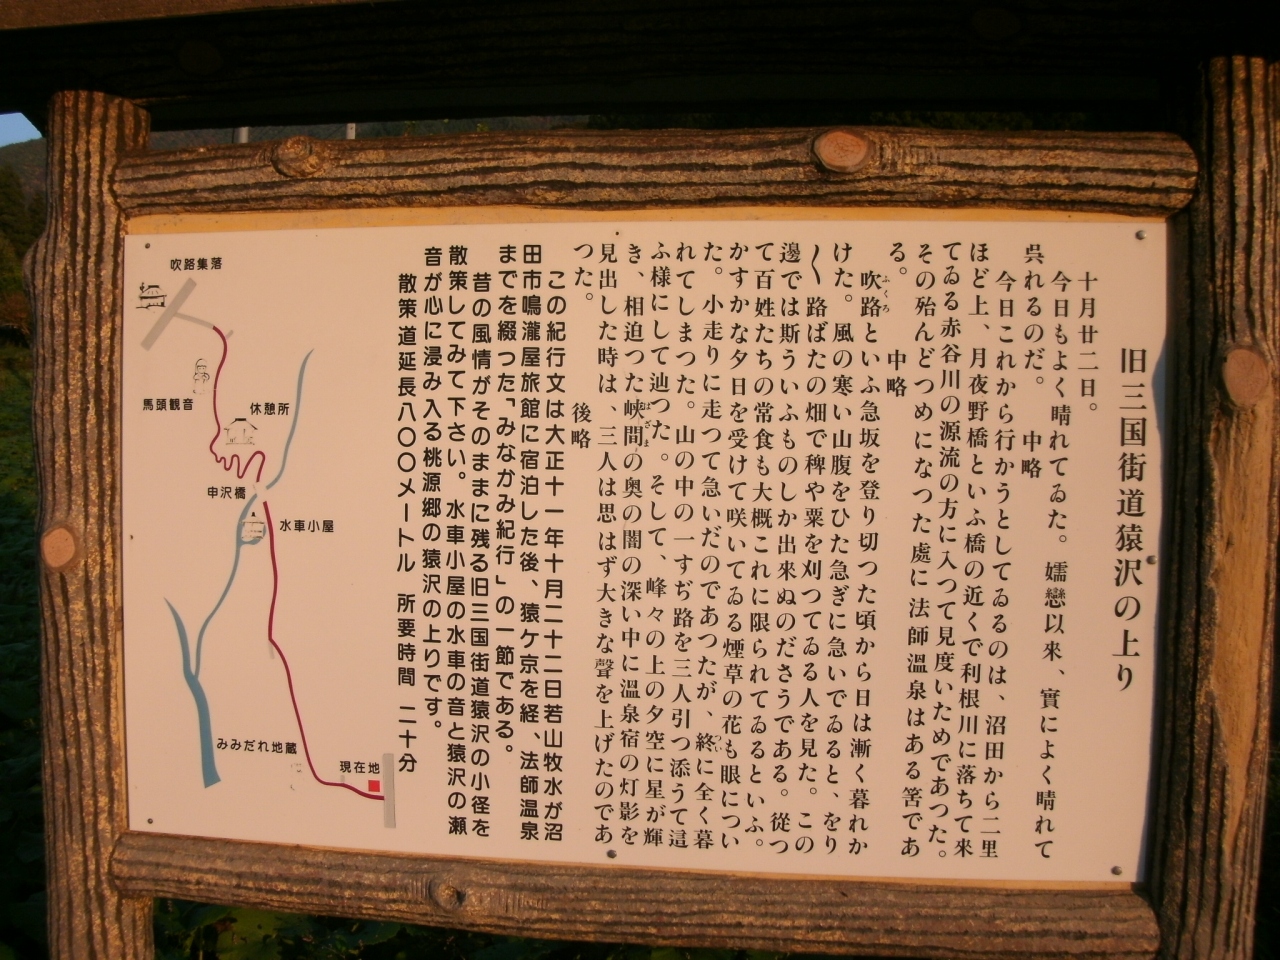 旧三国街道猿沢の上り
十月廿二日。
今日もよく晴れてゐた。嬬戀以来、實によく晴れて
呉れるのだ。 中略
今日これから行かうとしてゐるのは、沼田から二里
ほど上、月夜野橋といふ橋の近くで利根川に落ちて来
てゐる赤谷川の源流の方に入つて見度いためであつた。
その殆んどつめになつた處に法師温泉はある筈であ
る。 中略
吹路といふ急坂を登り切つた頃から日は漸く暮れか
ふくろ
けた。風の寒い山腹をひた急ぎに急いでゐると、をり
〱路ばたの畑で稗や粟を刈つてゐる人を見た。この
邊では斯ういふものしか出来ぬのださうである。従つ
て百姓たちの常食も大概これに限られてゐるといふ。
かすかな夕日を受けて咲いてゐる煙草の花も眼につい
た。小走りに走つて急いだのであつたが、終に全く暮
つい
れてしまつた。山の中の一すぢ路を三人引つ添うて這
ふ様にして辿つた。そして、峰々の上の夕空に星が輝
き、相迫つた峡間の奥の闇の深い中に温泉宿の灯影を
はざま
見出した時は、三人は思はず大きな聲を上げたのであ
つた。 後略
この紀行文は大正十一年十月二十二日若山牧水が沼
田市鳴瀧屋旅館に宿泊した後、猿ケ京を経、法師温泉
までを綴つた「みなかみ紀行」の一節である。
昔の風情がそのままに残る旧三国街道猿沢の小径を
散策してみて下さい。水車小屋の水車の音と猿沢の瀬
音が心に浸み入る桃源郷の猿沢の上りです。
散策道延長八〇〇メートル 所要時間 二十分
吹路集落
馬頭観音
休憩所
申沢橋
水車小屋
みみだれ地蔵
現在地